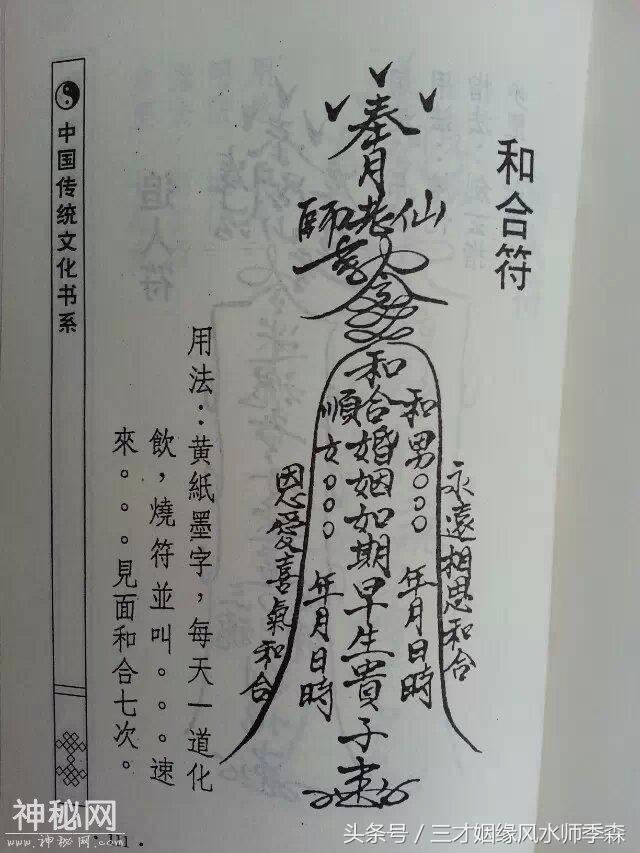 和合符
奉
月
師和老仙
令
和合婚姻如期早生貴子速
和男○○○ 年月日時
順女○○○ 年月日時
永遠相思和合
恩愛喜氣和合
用法：黄紙墨字，每天一道化
飲，燒符並叫。。。速
來。。。見面和合七次。
中国传统文化书系
111
神秘网
www.神秘网.com
头条号／三才姻缘风水师季森